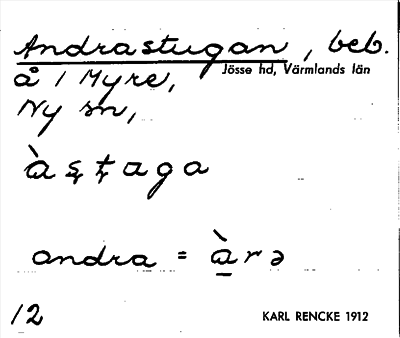 Andrastugan, beb.
Jösse hd, Värmlands län
å 1 Myre,
Ny sn,
àʂʈaga
andra = à̲rə
12 KARL RENCKE 1912